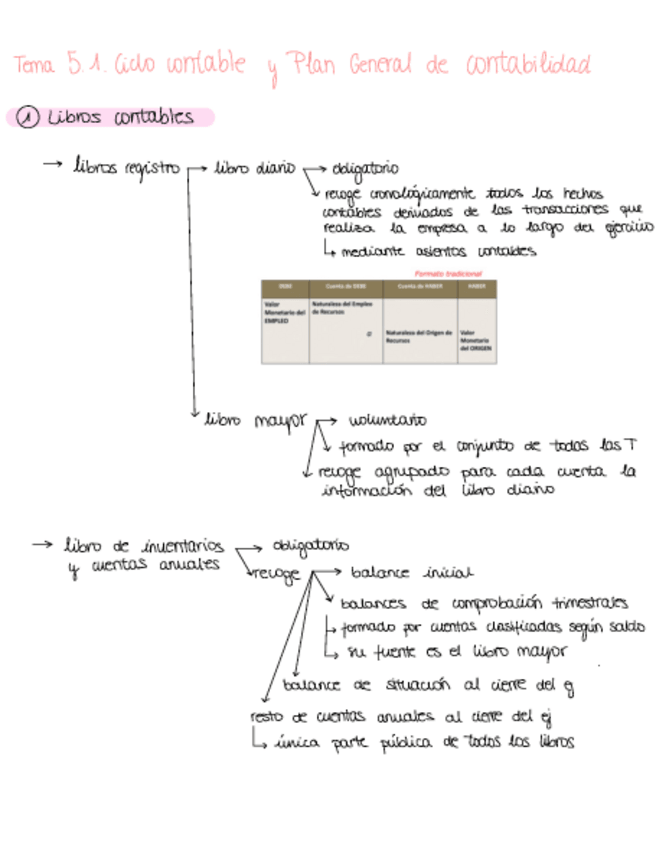 Tema 5.1. Ciclo contable y Plan General de contabilidad
① Libros contables
→ libros registro → libro diario → obligatorio
recoge cronológicamente todos los hechos
contables derivados de las transacciones que
realiza la empresa a lo largo del ejercicio
↳ mediante asientos contables
Formato tradicional
DEBE Cuenta de DEBE Cuenta de HABER HABER
Valor Monetario del EMPLEO
Naturaleza del Empleo de Recursos
a
Naturaleza del Origen de Recursos
Valor Monetario del ORIGEN
libro mayor → voluntario
formado por el conjunto de todas las T
recoge agrupado para cada cuenta la
información del libro diario
→ libro de inventarios → obligatorio
y cuentas anuales
recoge → balance inicial
balances de comprobación trimestrales
↳ formado por cuentas clasificadas según saldo
↳ su fuente es el libro mayor
balance de situación al cierre del ej
resto de cuentas anuales al cierre del ej
↳ única parte pública de todos los libros